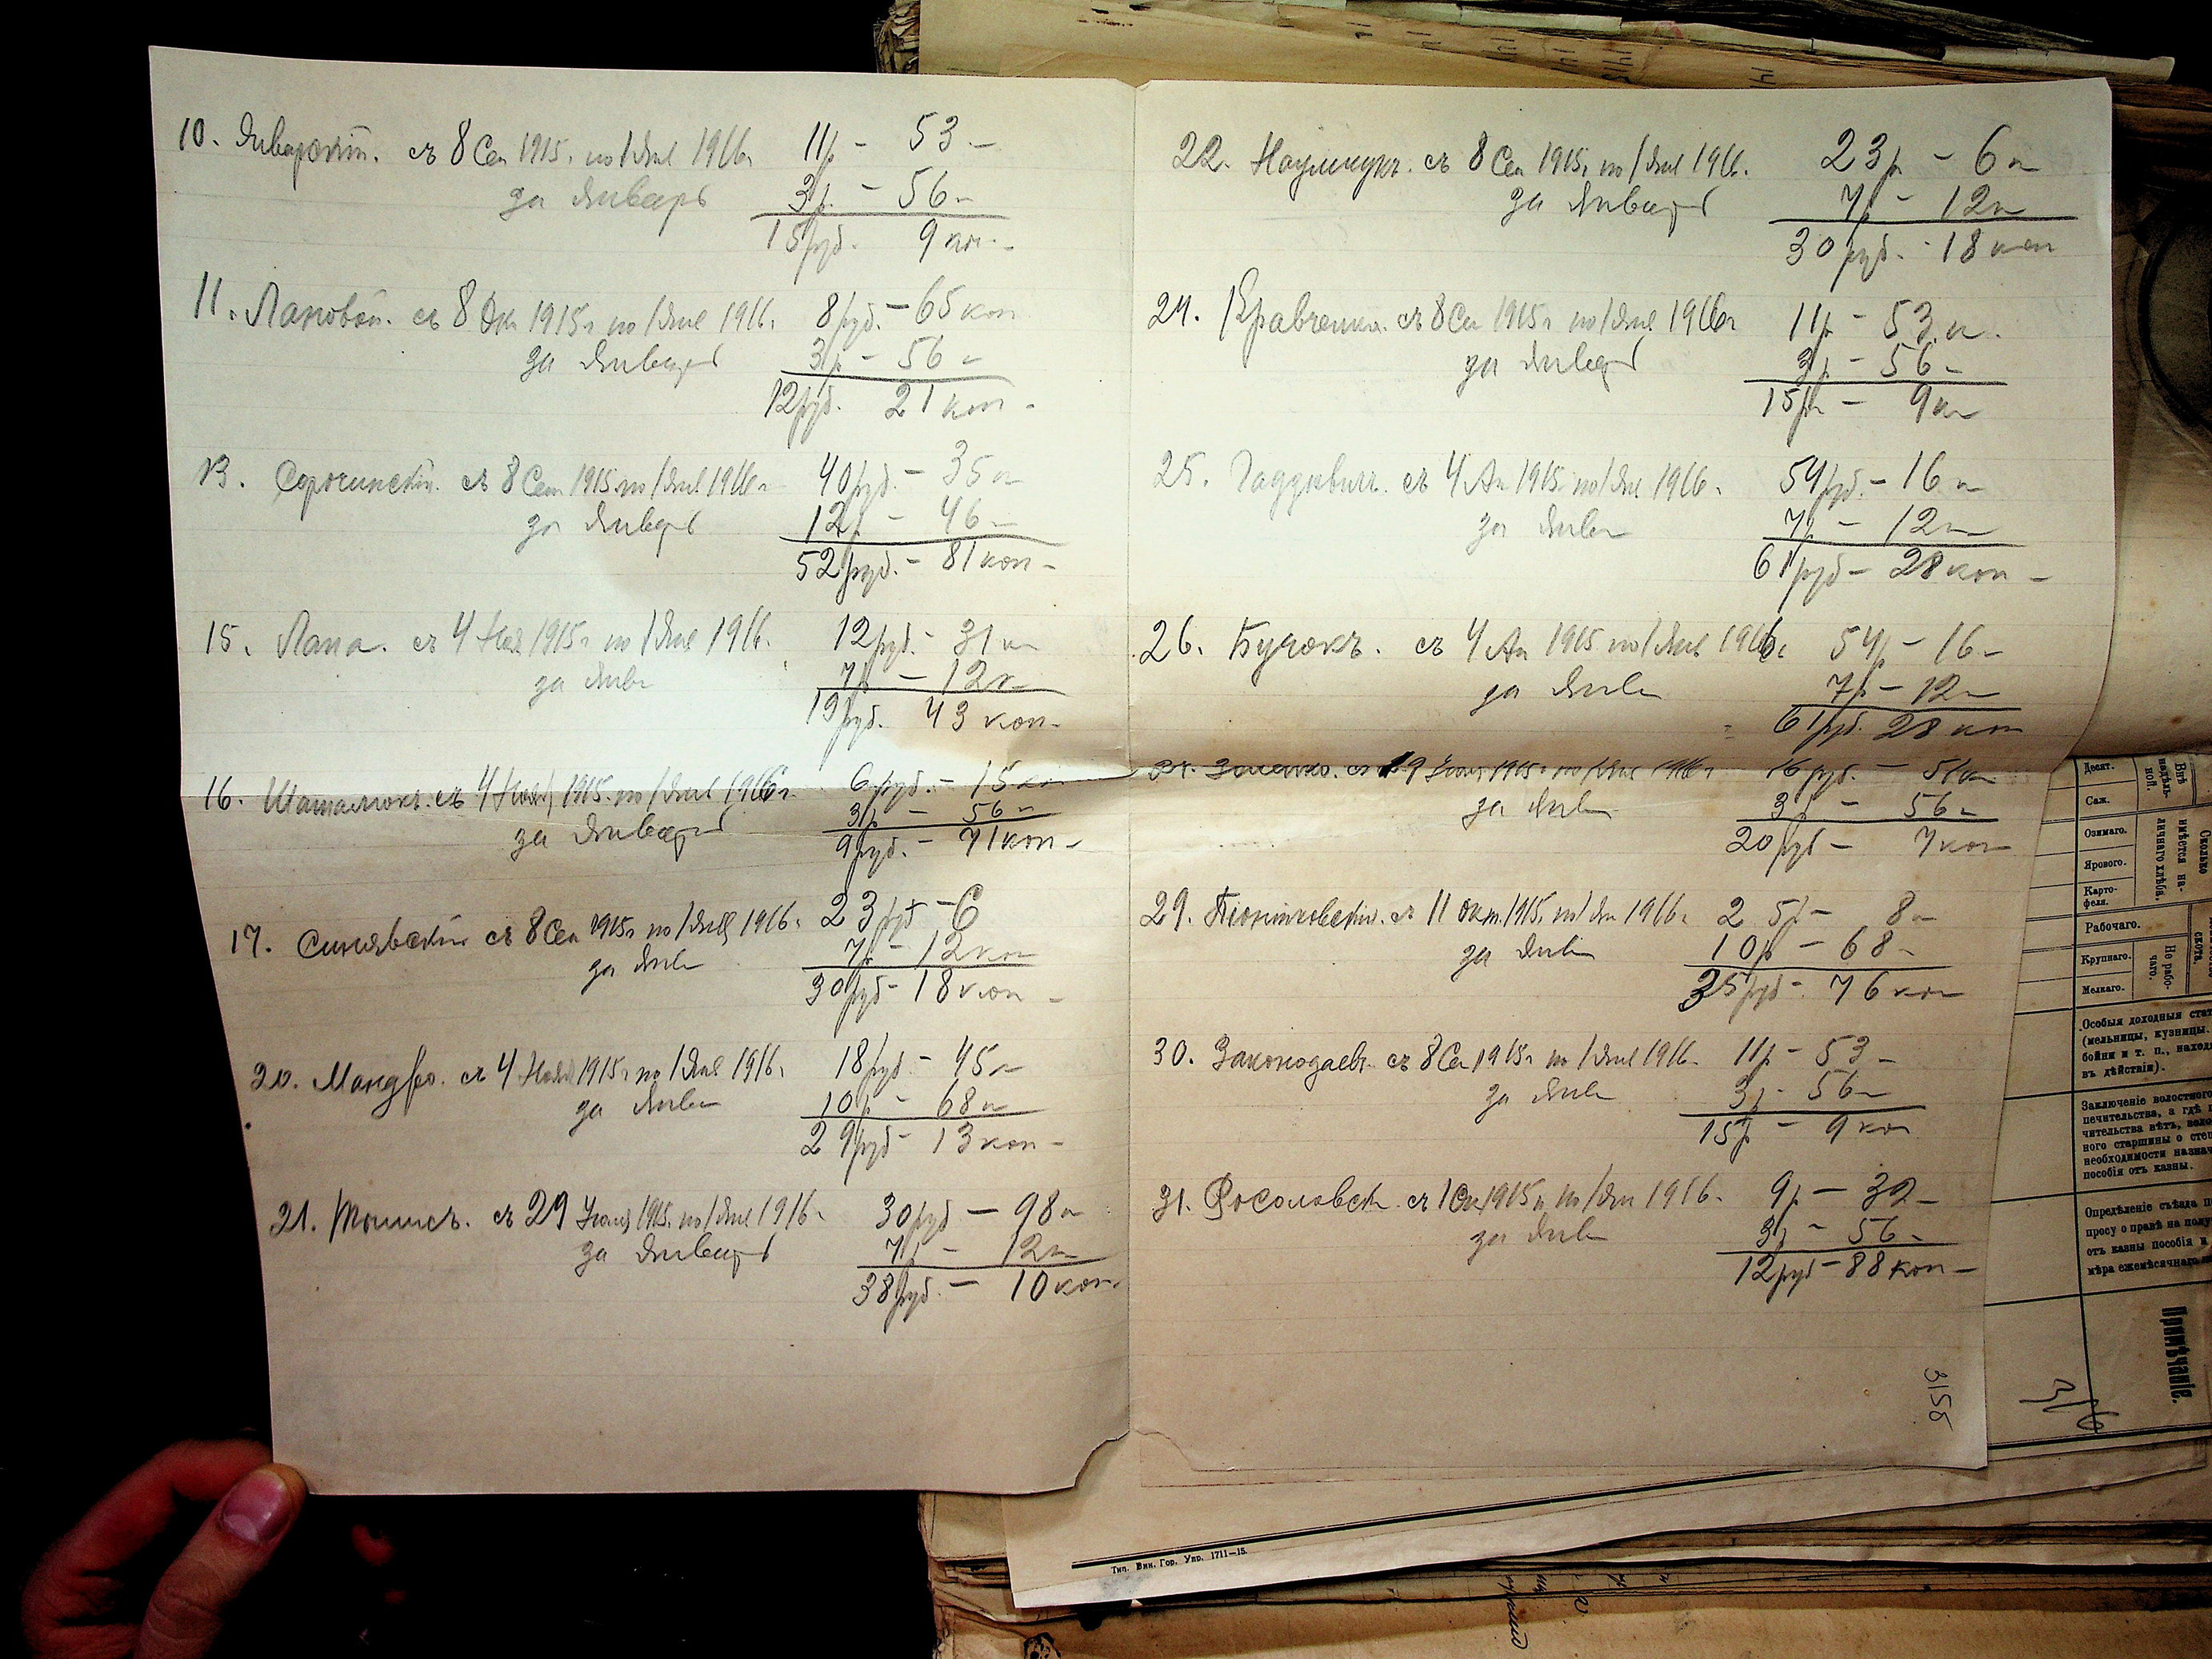 10. Январскій. съ 8 Сен 1915г. по 1 Янв 1916г. 11р – 53 –
за Январь 3р. – 56 –
15 руб. 9 коп. –
11. Лановой. съ 8 Ок 1915г по 1 Янв 1916г. 8 руб. – 65 коп
за Январь 3р – 56 –
12 руб. 21 коп –
13. Сорочинскій. съ 8 Сен 1915 по 1 Янв 1916г 40 руб. – 35 к
за Январь 12р – 46 –
52 руб. – 81 коп –
15. Лапа. съ 4 Ноя 1915г по 1 Янв 1916. 12 руб. – 31 к
за Янв 7р – 12 к
19 руб. 43 коп –
16. съ 4 Нояб 1915. по 1 Янв 1916г. 6 руб. – 15 коп
за Январь 3р – 56 –
9 руб. – 71 коп –
17. Синявскій съ 8 Сен 1915г по 1 Янв 1916г. 23 руб – 6
за Янв 7р – 12 коп
30 руб – 18 коп –
20. Мандро. съ 4 Нояб 1915г по 1 Янв 1916г. 18 руб – 45 к
за Янв 10р – 68 к
29 руб – 13 коп –
21. съ 29 Іюля 1915. по 1 Янв 1916 – 30 руб – 98 к
за Январь 7р – 12 к
38 руб. – 10 коп.
22. Наумчукъ. съ 8 Сен 1915г по 1 Янв 1916. 23р – 6 к
за Январь 7р – 12 к
30 руб. – 18 коп
24. Кравченко. съ 8 Сен 1915г по 1 Янв 1916г 11р – 53 к.
за Январь 3р – 56 –
15р – 9 к
25. съ 4 Ап 1915 по 1 Янв 1916. 54 руб. – 16 к
за Янв 7р – 12 к
61 руб – 28 коп –
26. Бучокъ. съ 4 Ап 1915 по 1 Янв 1916г. 54р – 16 –
за Янв 7р – 12 к
61 руб. 28 коп
съ 19 1915г по 1 Янв 1916г 16 руб. – 51 к
за Янв 3р – 56 –
20 руб – 7 коп
29. Піонтковскій. съ 11 Окт. 1915г по 1 Ян 1916г. 25р – 8 к
за Янв 10р – 68 –
35 руб – 76 коп
30. Законодаевъ. съ 8 Се 1915г по 1 Янв 1916. 11р – 53 –
за Янв 3р – 56 –
15р – 9 коп
31. Росоловск съ 1 1915г по 1 Ян 1916. 9р – 32 –
за Янв 3р – 56 –
12 руб – 88 коп –
315б
Десят.
Саж.
Озимаго.
Ярового.
Карто-
феля.
Рабочаго.
Крупнаго.
Мелкаго.
Внѣ
надѣль-
ной.
Сколько
имѣется на-
личнаго хлѣба.
Не рабо-
чаго.
скота.
Особыя доходныя стат
(мельницы, кузницы.
бойни и т. п., наход
въ дѣйствіи).
Заключеніе волостного
печительства, а гдѣ п
чительства нѣтъ, воло
ного старшины о степ
необходимости назнач
пособія отъ казны.
Опредѣленіе съѣзда п
просу о правѣ на полу
отъ казны пособія и
мѣра ежемѣсячнаго
Примѣчаніе.
316
Тип. Вин. Гор. Упр. 1711—15.